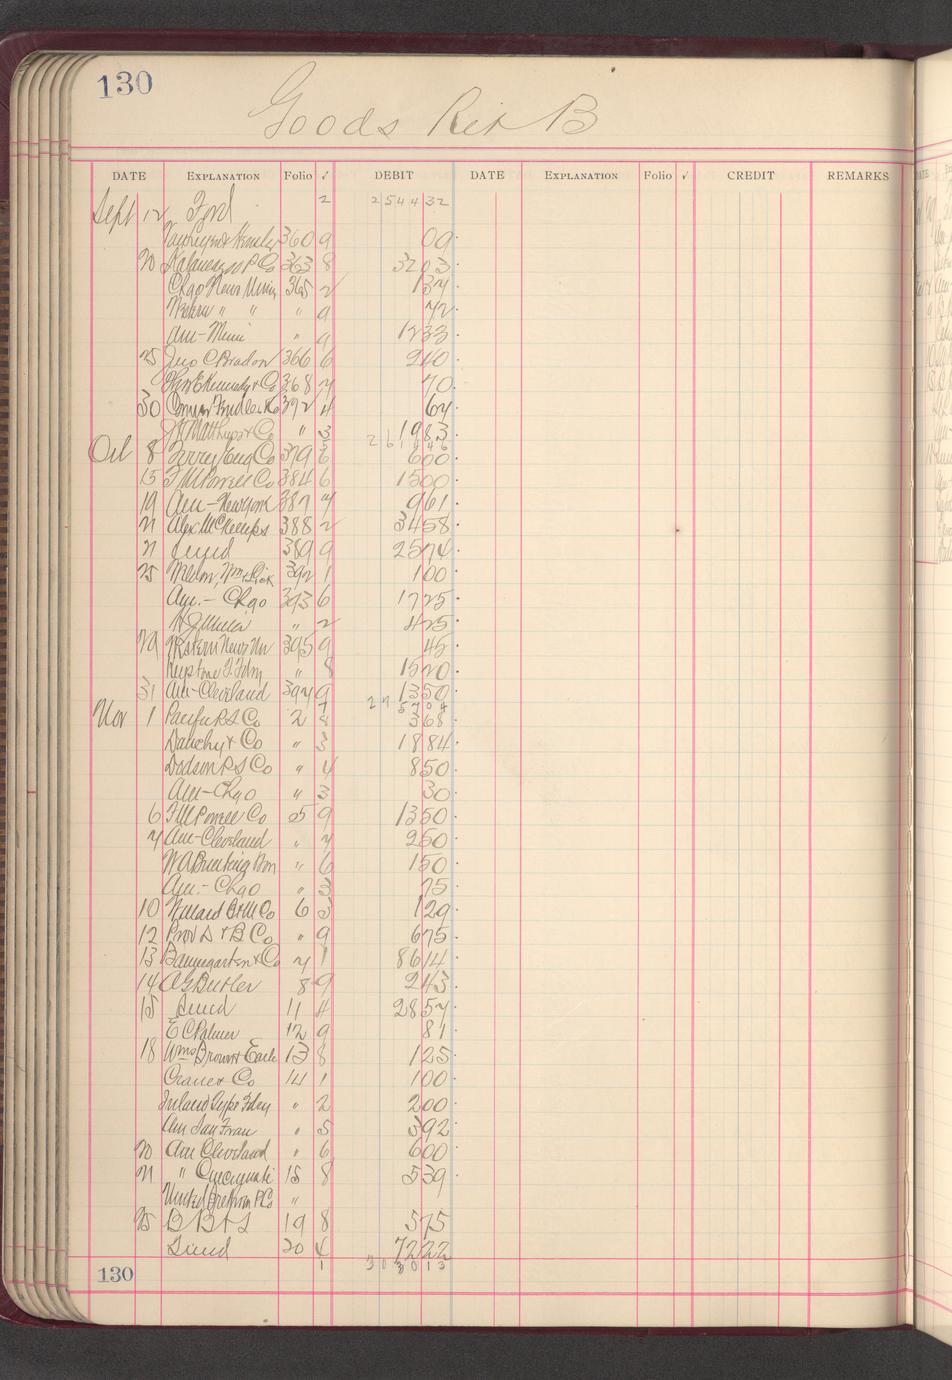 130
Goods Ret B
DATE EXPLANATION Folio ✓ DEBIT DATE EXPLANATION Folio ✓ CREDIT REMARKS
Sept 12 Ford 2 2544 32
360 9 09
20 P Co 363 8 32 03
Chgo News Union 365 2 1 37
Western " " " 9 72
Am- " 9 12 33
25 Jno C 366 6 2 40
Kennedy & Co 368 7 70
30 392 4 67
Matthews & Co " 3 19 83
2616 46
Oct 8 Eng Co 379 6 6 00
15 F M Powell Co 384 6 15 00
19 Am - New York 387 7 9 61
21 Alex McKillips 388 2 34 58
21 389 9 25 74
25 392 1 1 00
Am. - Chgo 393 6 17 25
H J " 2 4 25
29 Western News Un 395 9 45
Keystone T Fdry " 8 15 20
31 Am - Cleveland 397 9 13 50
2757 04
Nov 1 Pacific P S Co 2 8 3 68
Dauchy & Co " 3 18 84
Dodson P S Co " 4 8 50
Am - Chgo " 3 30
6 F M Powell Co 5 9 13 50
7 Am - Cleveland " 7 2 50
W A " 6 1 50
Am. - Chgo " 3 75
10 Co 6 3 1 29
12 Co " 9 6 75
13 Baumgarten & Co 7 1 86 14
14 A G Butler 8 9 2 43
15 11 4 28 57
E C Palmer 12 9 81
18 Wms Brown & Earle 13 8 1 25
Crane & Co 14 1 1 00
Inland Type Fdry " 2 2 00
Am San Fran " 5 3 92
20 Am Cleveland " 6 6 00
21 " 15 8 5 39
United "
25 B B & S 19 8 5 75
20 4 72 22
1 3030 13
130